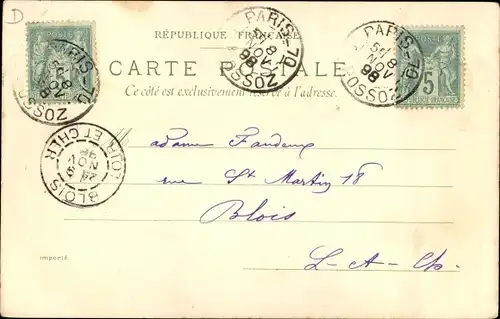 D
RÉPUBLIQUE FRANÇAISE
CARTE POSTALE
Ce côté est exclusivement réservé à l'adresse.
PARIS-70
8
NOV
98
ZOSSO
PARIS-70
8
NOV
98
ZOSSO
PARIS-70
5E
8
NOV
98
ZOSSO
5
RÉPUBLIQUE FRANÇAISE
BLOIS
9
NOV
98
LOIR ET CHER
Madame Fandeux
rue St Martin 18
Blois
L-A-Ch.
importé